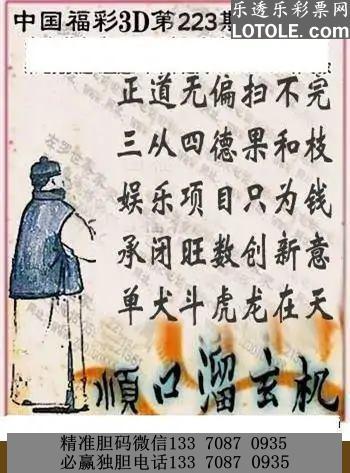 中国福彩3D第223期
乐透乐彩票网
LOTOLE.COM
正道无偏扫不完
三从四德果和枝
娱乐项目只为钱
承闭旺数创新意
单犬斗虎龙在天
顺口溜玄机
精准胆码微信133 7087 0935
必赢独胆电话133 7087 0935